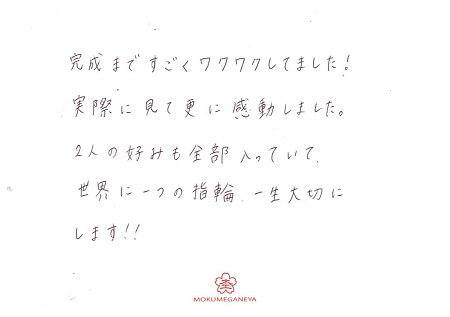 完成まですごくワクワクしてました!
実際に見て更に感動しました。
2人の好みも全部入っていて、
世界に一つの指輪、一生大切に
します!!
MOKUMEGANEYA